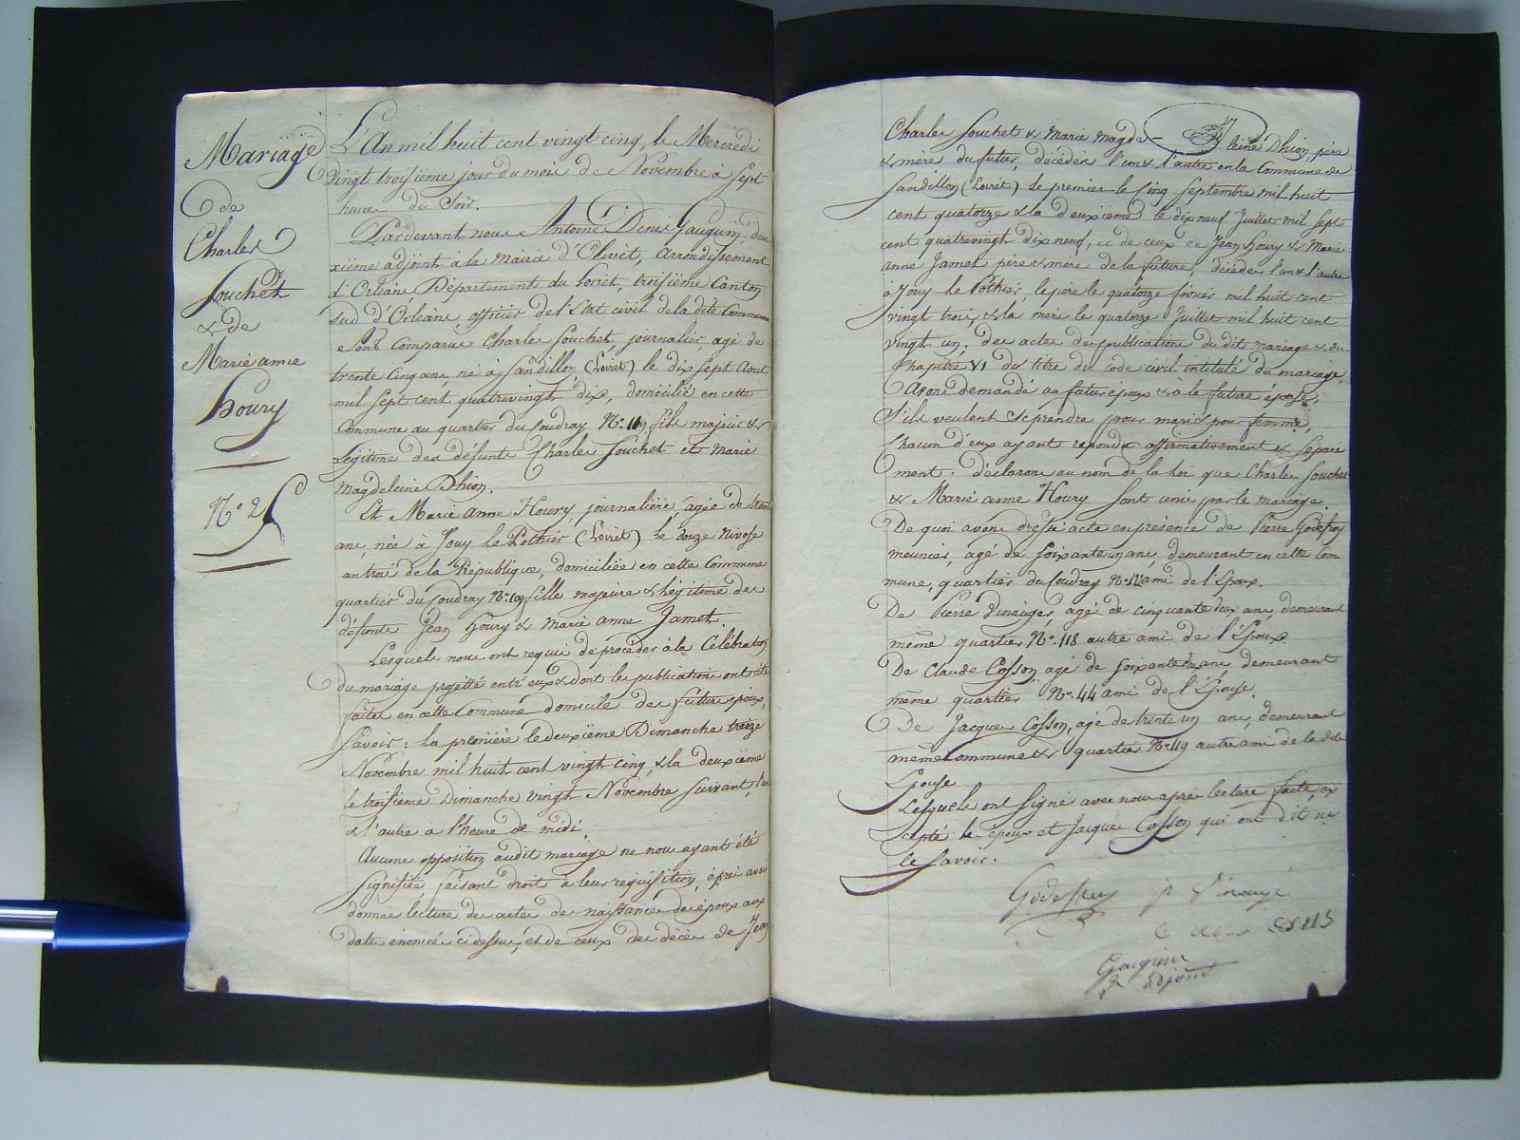 Mariage
de
Charles
Souchet
& de
Marie anne
houry
N.o 25
L'An mil huit cent vingt cinq, le Mercredi
vingt troisieme jour du mois de Novembre à Sept
heures du Soir.
Pardevant nous Antoine Denis Gauguin, deu
xième adjoint à la Mairie d'Olivet, arrondissement
d'Orléans, Département du Loiret, troisième Canton
sud d'Orléans, officier de l'état civil de la dite Commune
Sont Comparus Charles Souchet, journalier, agé de
trente Cinq ans, né à Sandillon (Loiret) le dix sept Aout
mil sept cent quatrevingt dix, domicilié en cette
Commune au quartier du Coudray N.o 119 fils majeur &
Légitime des défunts Charles Souchet et Marie
Magdeleine Dhion.
Et Marie Anne Houry journalière, agée de trente
ans, née à Jouy le Pothier (Loiret) le douze Nivose
an trois de la République, domiciliée en cette Commune
quartier du Coudray N.o 109 fille majeure & légitime des
défunts Jean Houry & Marie anne Jamet.
Lesquels nous ont requis de procéder à la Célébration
du mariage projetté entr'eux & dont les publications ont été
faites en cette Commune domicile des futurs époux,
Savoir: la première le deuxième Dimanche treize
Novembre mil huit cent vingt cinq, & la deuxième
le troisième Dimanche vingt Novembre suivant, l'un
& l'autre a l'heure de midi.
Aucune opposition audit mariage ne nous ayant été
signifiée, faisant droit à leur réquisition, après avoir
donné lecture des actes de naissances des époux aux
dates énoncés ci dessus, et de ceux des décès de Jean
Charles Souchet & Marie Magde- leine Dhion, père
& mère du futur, décédés l'un & l'autre en la Commune de
Sandillon (Loiret) le premier le cinq Septembre mil huit
cent quatorze & la deuxième le dix neuf Juillet mil sept
cent quatrevingt dix neuf, & de ceux de Jean Houry & Marie
anne Jamet père & mère de la future, décédés l'un & l'autre
à Jouy le Pothier, le père le quatorze février mil huit cent
vingt trois, & la mère le quatorze Juillet mil huit cent
vingt un; des actes des publications du dit mariage & du
Chapitre VI du titre du code civil intitulé du mariage,
Avons demandé au futur époux & à la future épouse,
S'ils veulent se prendre pour mari & pour femme,
Chacun d'eux ayant repondu affirmativement & séparé
ment, déclarons au nom de la loi que Charles Souchet
& Marie anne Houry sont unis par le mariage.
De quoi avons dressé acte en présence de Pierre Godefroy
meunier, agé de soixante un ans, demeurant en cette Com
mune, quartier du Coudray N.o 112 ami de l'Epoux.
De Pierre Vinauger, agé de cinquante deux ans, demeurant
même quartier N.o 118 autre ami de l'Epoux
De Claude Cosson agé de soixante ans demeurant
même quartier N.o 44 ami de l'Epouse.
De Jacques Cosson, agé de trente un ans, demeurant
même Commune & quartier N.o 119 autre ami de la dite
Epouse
Lesquels ont signé avec nous après lecture faite, ex
cepté les époux et Jacques Cosson qui ont dit ne
le savoir.
Godefroy
Gauguin
adjoint